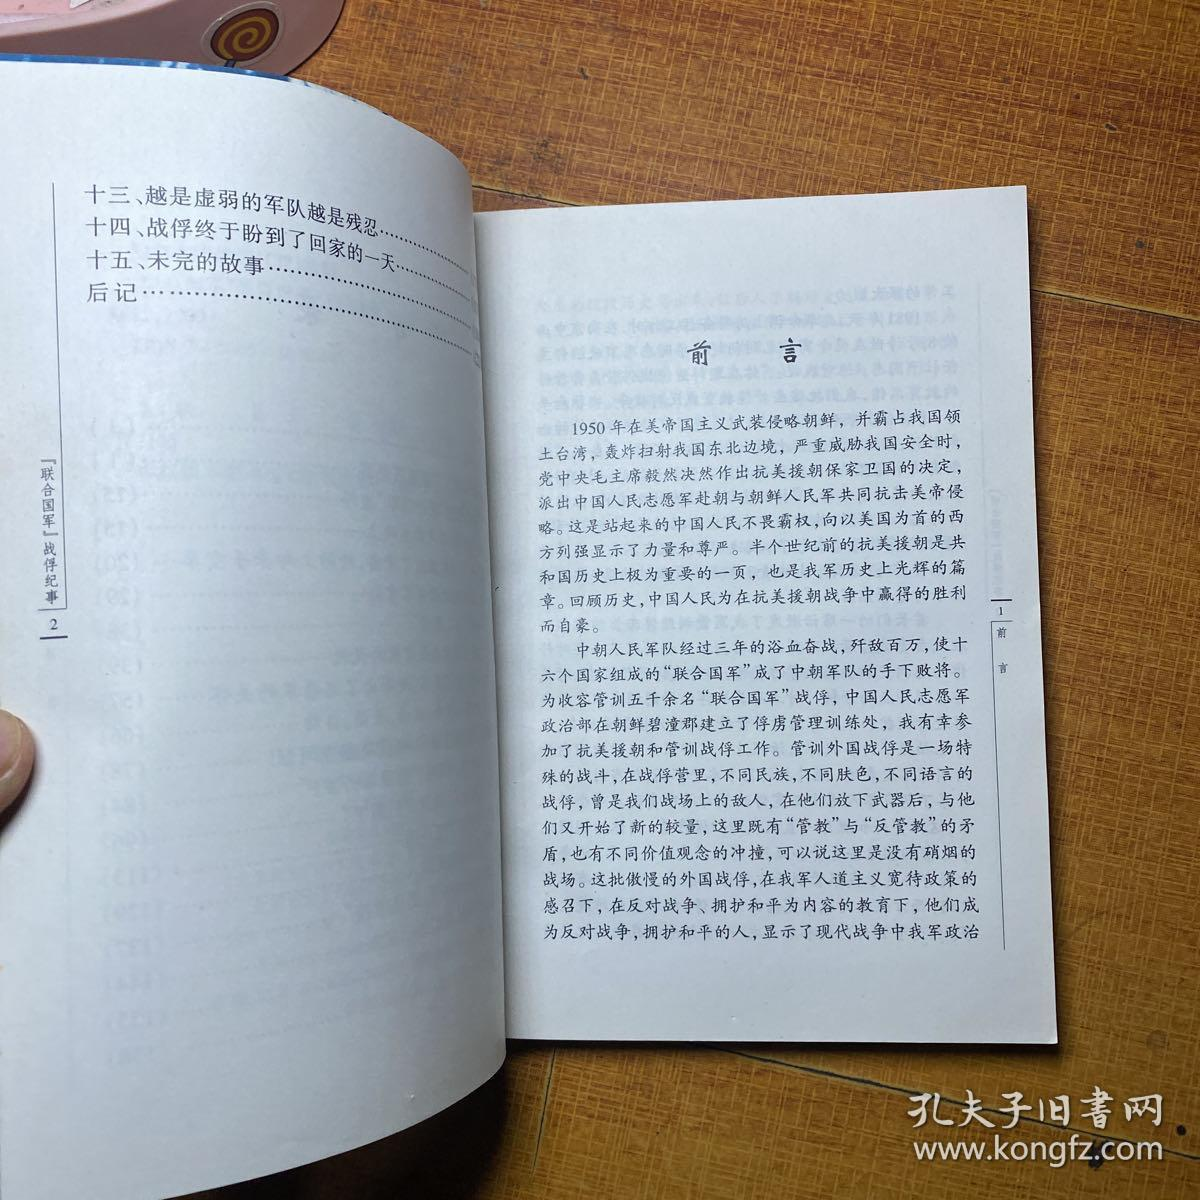 十三、越是虚弱的军队越是残忍……………
十四、战俘终于盼到了回家的一天…………
十五、未完的故事……………………
后记……………………………
「联合国军」战俘纪事
2
前言
1950年在美帝国主义武装侵略朝鲜，并霸占我国领
土台湾，轰炸扫射我国东北边境，严重威胁我国安全时，
党中央毛主席毅然决然作出抗美援朝保家卫国的决定，
派出中国人民志愿军赴朝与朝鲜人民军共同抗击美帝侵
略。这是站起来的中国人民不畏霸权，向以美国为首的西
方列强显示了力量和尊严。半个世纪前的抗美援朝是共
和国历史上极为重要的一页，也是我军历史上光辉的篇
章。回顾历史，中国人民为在抗美援朝战争中赢得的胜利
而自豪。
中朝人民军队经过三年的浴血奋战，歼敌百万，使十
六个国家组成的“联合国军”成了中朝军队的手下败将。
为收容管训五千余名“联合国军”战俘，中国人民志愿军
政治部在朝鲜碧潼郡建立了俘虏管理训练处，我有幸参
加了抗美援朝和管训战俘工作。管训外国战俘是一场特
殊的战斗，在战俘营里，不同民族，不同肤色，不同语言的
战俘，曾是我们战场上的敌人，在他们放下武器后，与他
们又开始了新的较量，这里既有“管教”与“反管教”的矛
盾，也有不同价值观念的冲撞，可以说这里是没有硝烟的
战场。这批傲慢的外国战俘，在我军人道主义宽待政策的
感召下，在反对战争、拥护和平为内容的教育下，他们成
为反对战争，拥护和平的人，显示了现代战争中我军政治
1
前言
孔夫子旧书网
www.kongfz.com